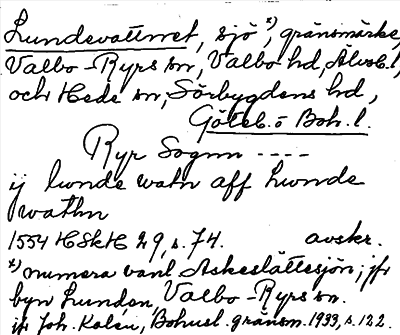 Lundevattnet, sjö x), gränsmärke,
Valbo-Ryrs sn, Valbo hd, Älvsb. l,
och Hede sn, Sörbygdens hd,
Göteb. o Boh. l.
Ryr Sognn ----
ij lunde watn aff Lwnde
wathn
1554 HSkH 29, s. 74. avskr.
x) numera vanl Askeslättesjön; jfr
byn Lunden, Valbo-Ryrs sn.
jfr Joh. Kalén, Bohusl. gränsm. 1933, s. 122.